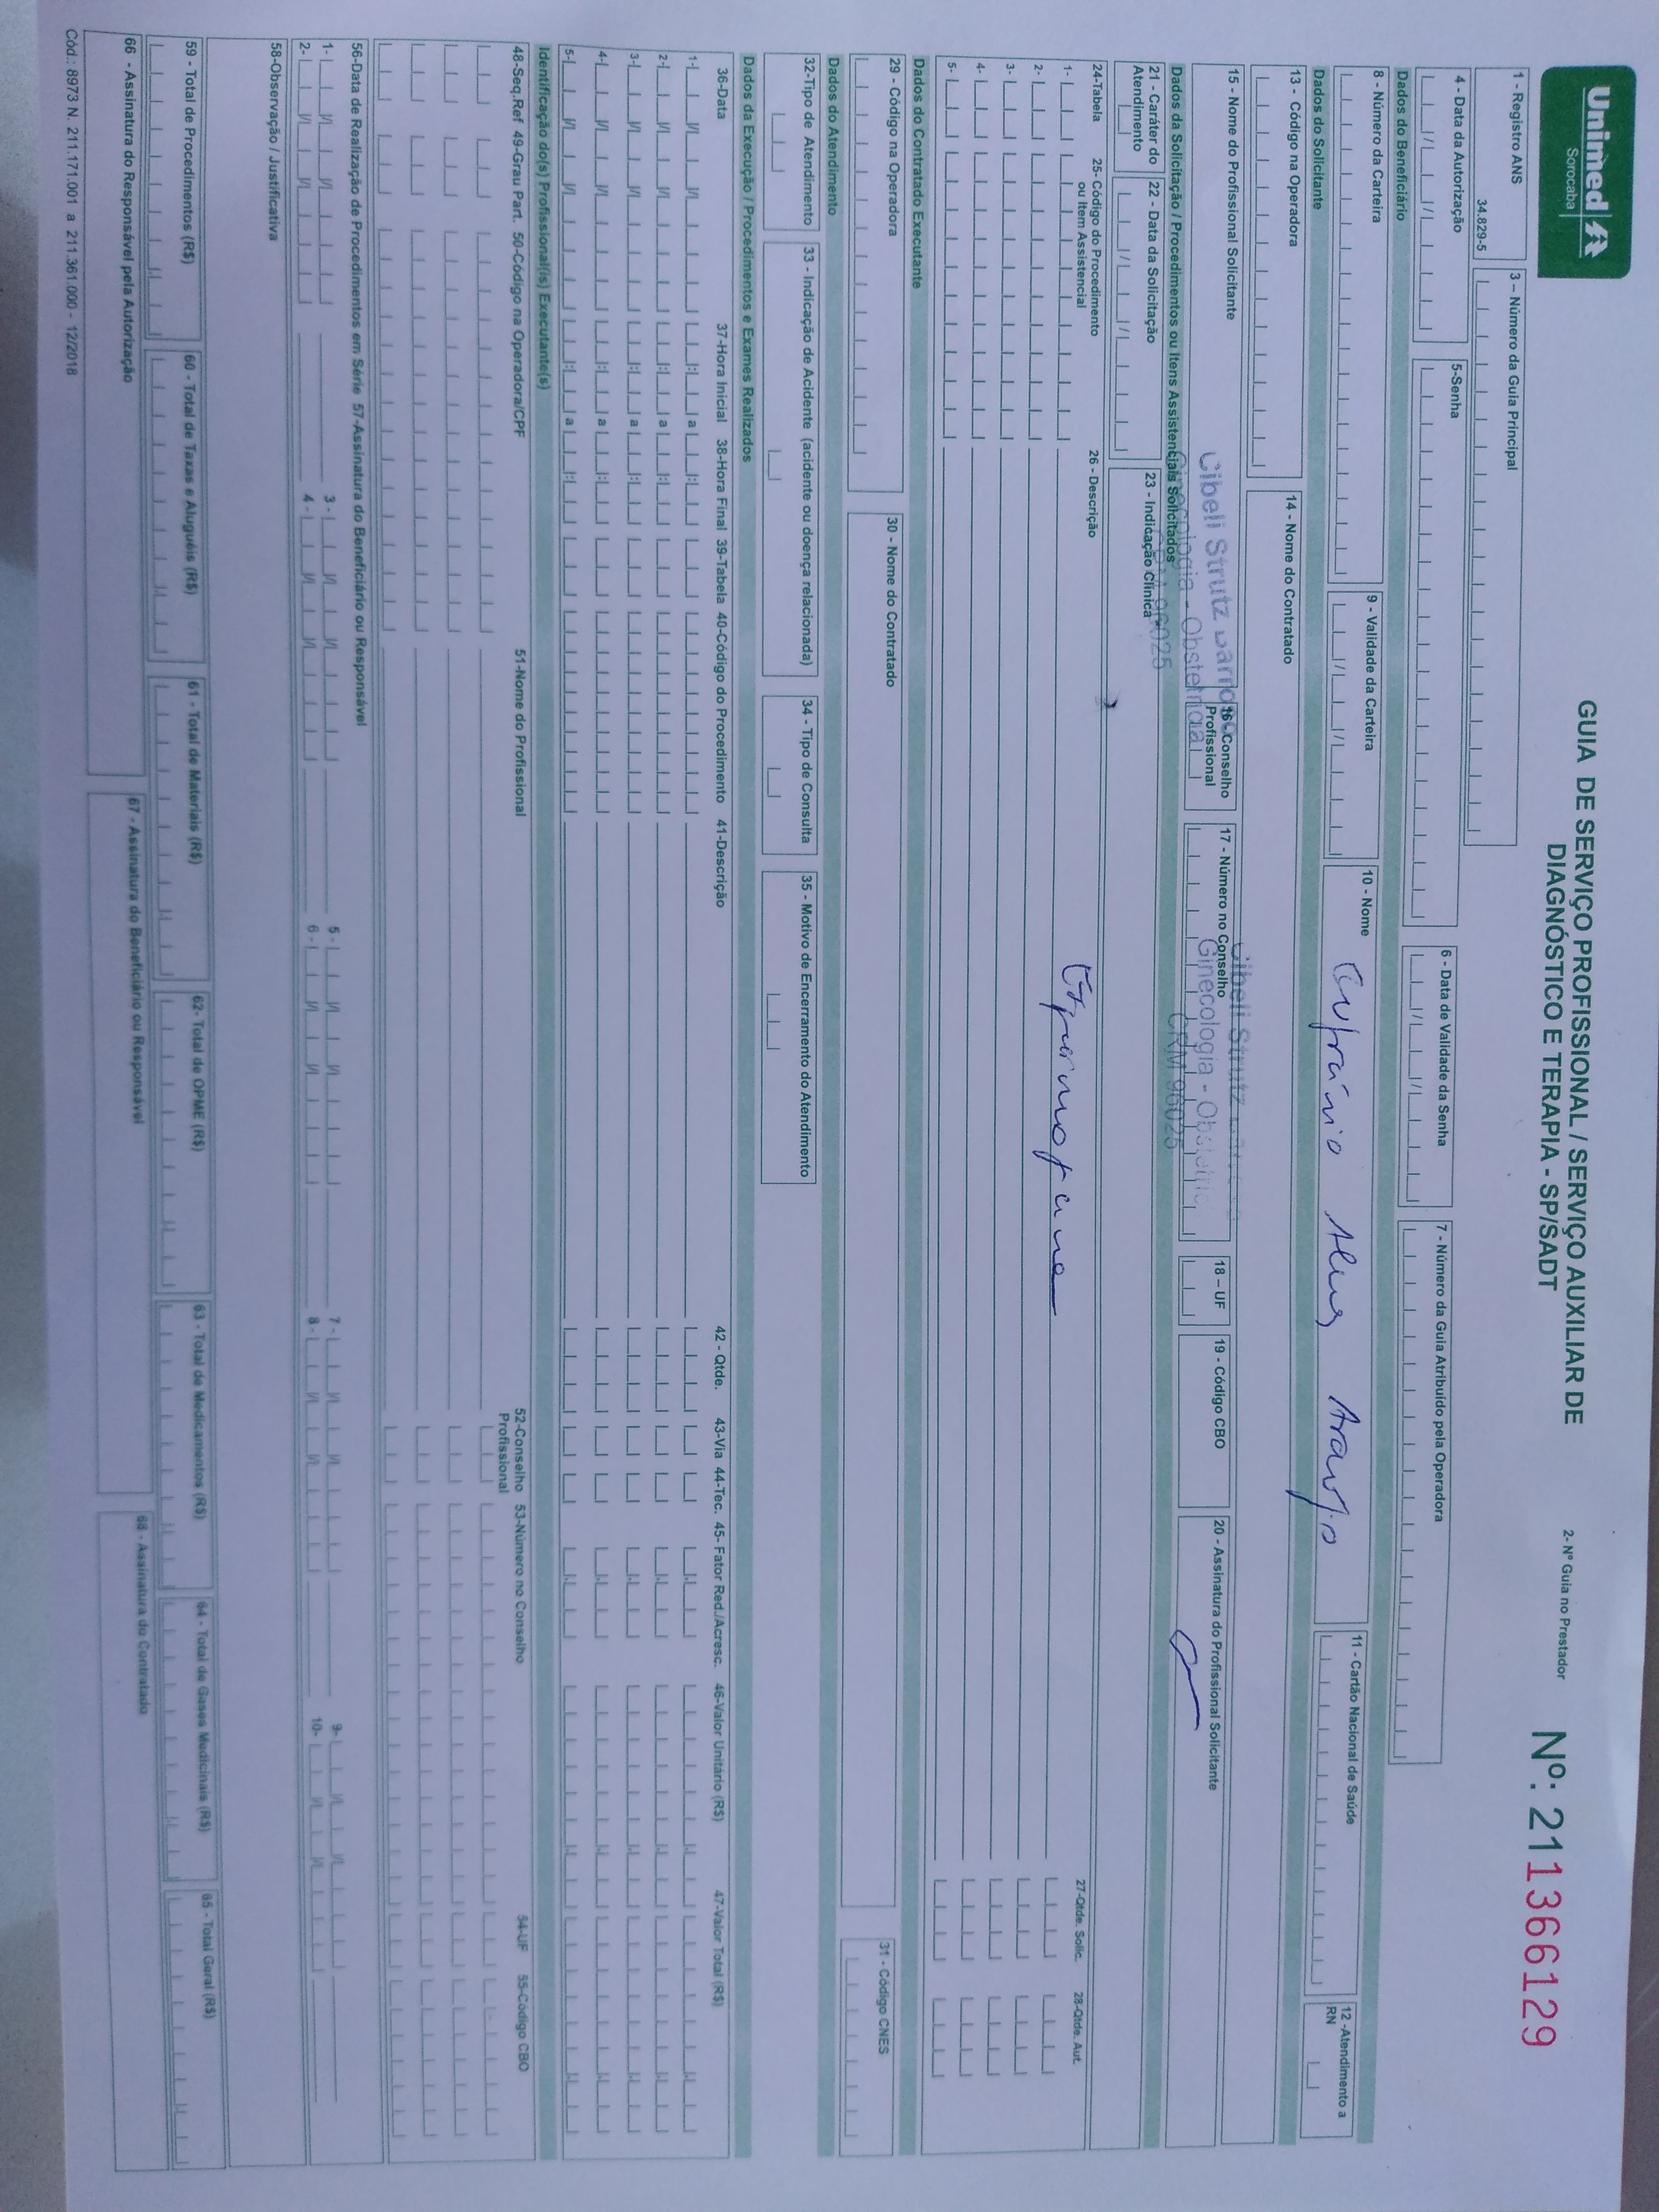 Unimed
Sorocaba
GUIA DE SERVIÇO PROFISSIONAL / SERVIÇO AUXILIAR DE
DIAGNÓSTICO E TERAPIA - SP/SADT
2- Nº Guia no Prestador
Nº: 211366129
1 - Registro ANS
34.829-5
3 – Número da Guia Principal
4 - Data da Autorização
5-Senha
6 - Data de Validade da Senha
7 - Número da Guia Atribuído pela Operadora
Dados do Beneficiário
8 - Número da Carteira
9 - Validade da Carteira
10 - Nome
Alves Araujo
11 - Cartão Nacional de Saúde
12 -Atendimento a
RN
Dados do Solicitante
13 - Código na Operadora
14 - Nome do Contratado
15 - Nome do Profissional Solicitante
16 Conselho
Profissional
17 - Número no Conselho
18 – UF
19 - Código CBO
20 - Assinatura do Profissional Solicitante
Cibeli Strutz
Ginecologia - Obstetrícia
CRM 96025
Cibeli Strutz
Ginecologia -
CRM 96025
Dados da Solicitação / Procedimentos ou Itens Assistenciais Solicitados
21 - Caráter do
Atendimento
22 - Data da Solicitação
23 - Indicação Clínica
24-Tabela
25- Código do Procedimento
ou Item Assistencial
26 - Descrição
27-Qtde. Solic.
28-Qtde. Aut.
1-
Espermograma
2-
3-
4-
5-
Dados do Contratado Executante
29 - Código na Operadora
30 - Nome do Contratado
31 - Código CNES
Dados do Atendimento
32-Tipo de Atendimento
33 - Indicação de Acidente (acidente ou doença relacionada)
34 - Tipo de Consulta
35 - Motivo de Encerramento do Atendimento
Dados da Execução / Procedimentos e Exames Realizados
36-Data
37-Hora Inicial
38-Hora Final
39-Tabela
40-Código do Procedimento
41-Descrição
42 - Qtde.
43-Via
44-Tec.
45- Fator Red./Acresc.
46-Valor Unitário (R$)
47-Valor Total (R$)
1- a
2- a
3- a
4- a
5- a
Identificação do(s) Profissional(is) Executante(s)
48-Seq.Ref
49-Grau Part.
50-Código na Operadora/CPF
51-Nome do Profissional
52-Conselho
Profissional
53-Número no Conselho
54-UF
55-Código CBO
56-Data de Realização de Procedimentos em Série
57-Assinatura do Beneficiário ou Responsável
1- 3 - 5 - 7 - 9-
2- 4 - 6 - 8 - 10-
58-Observação / Justificativa
59 - Total de Procedimentos (R$)
60 - Total de Taxas e Aluguéis (R$)
61 - Total de Materiais (R$)
62- Total de OPME (R$)
63 - Total de Medicamentos (R$)
64 - Total de Gases Medicinais (R$)
65 - Total Geral (R$)
66 - Assinatura do Responsável pela Autorização
67 - Assinatura do Beneficiário ou Responsável
68 - Assinatura do Contratado
Cód.: 8973 N. 211.171.001 a 211.361.000 - 12/2018